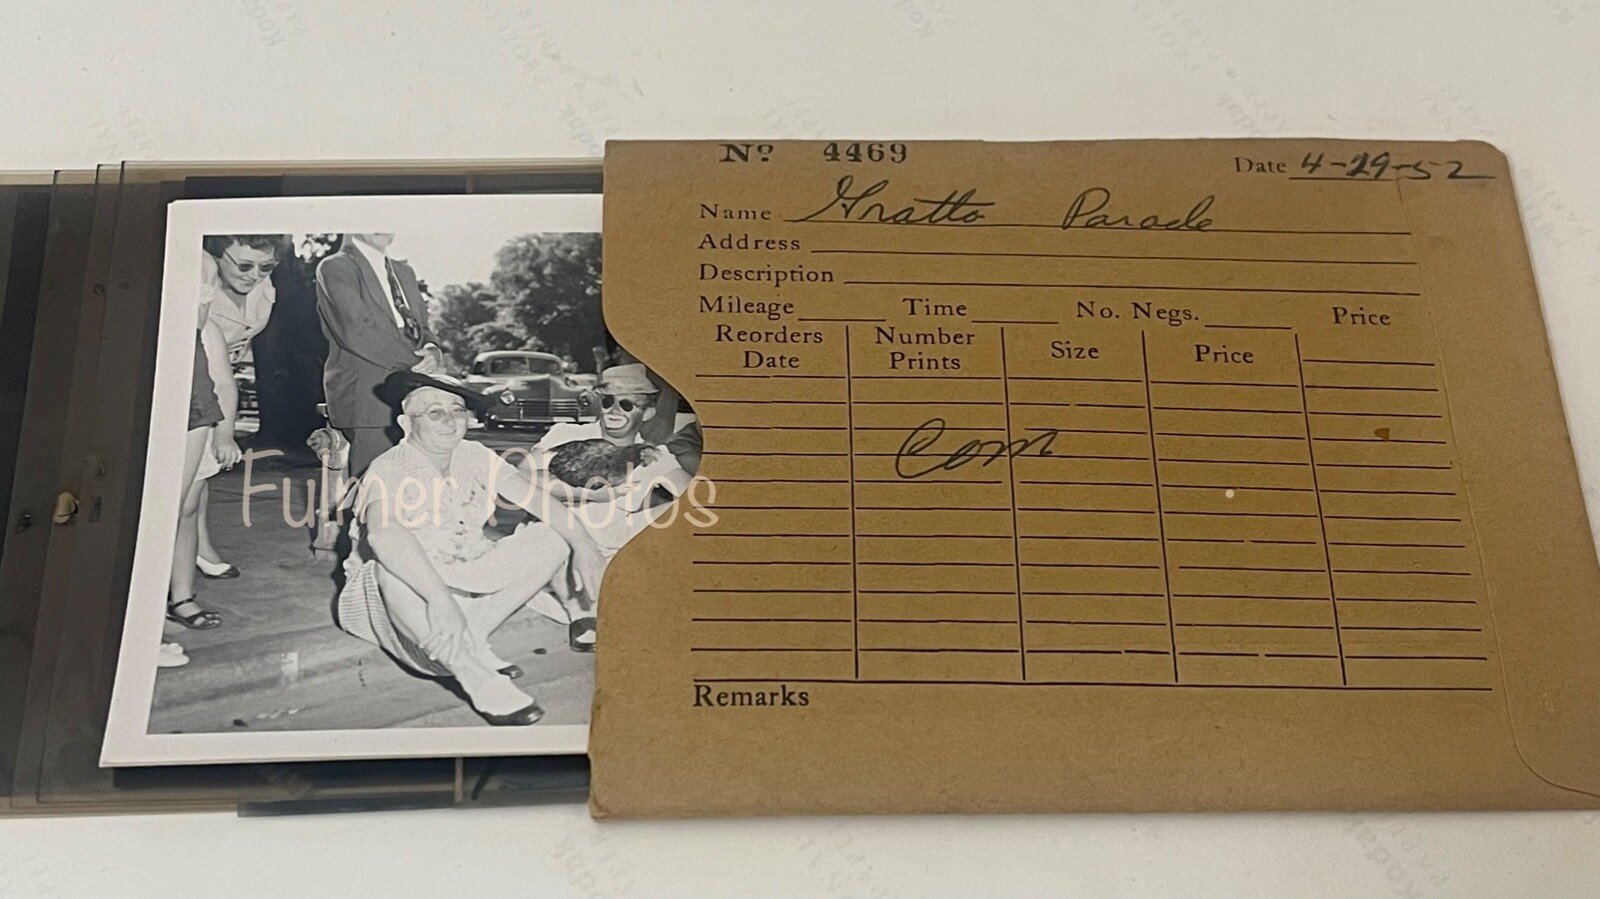 No 4469
Date 4-29-52
Name Grotto Parade
Address
Description
Mileage Time No. Negs. Price
Reorders Date Number Prints Size Price
Com
Remarks
Fulmer Photos
Kodak